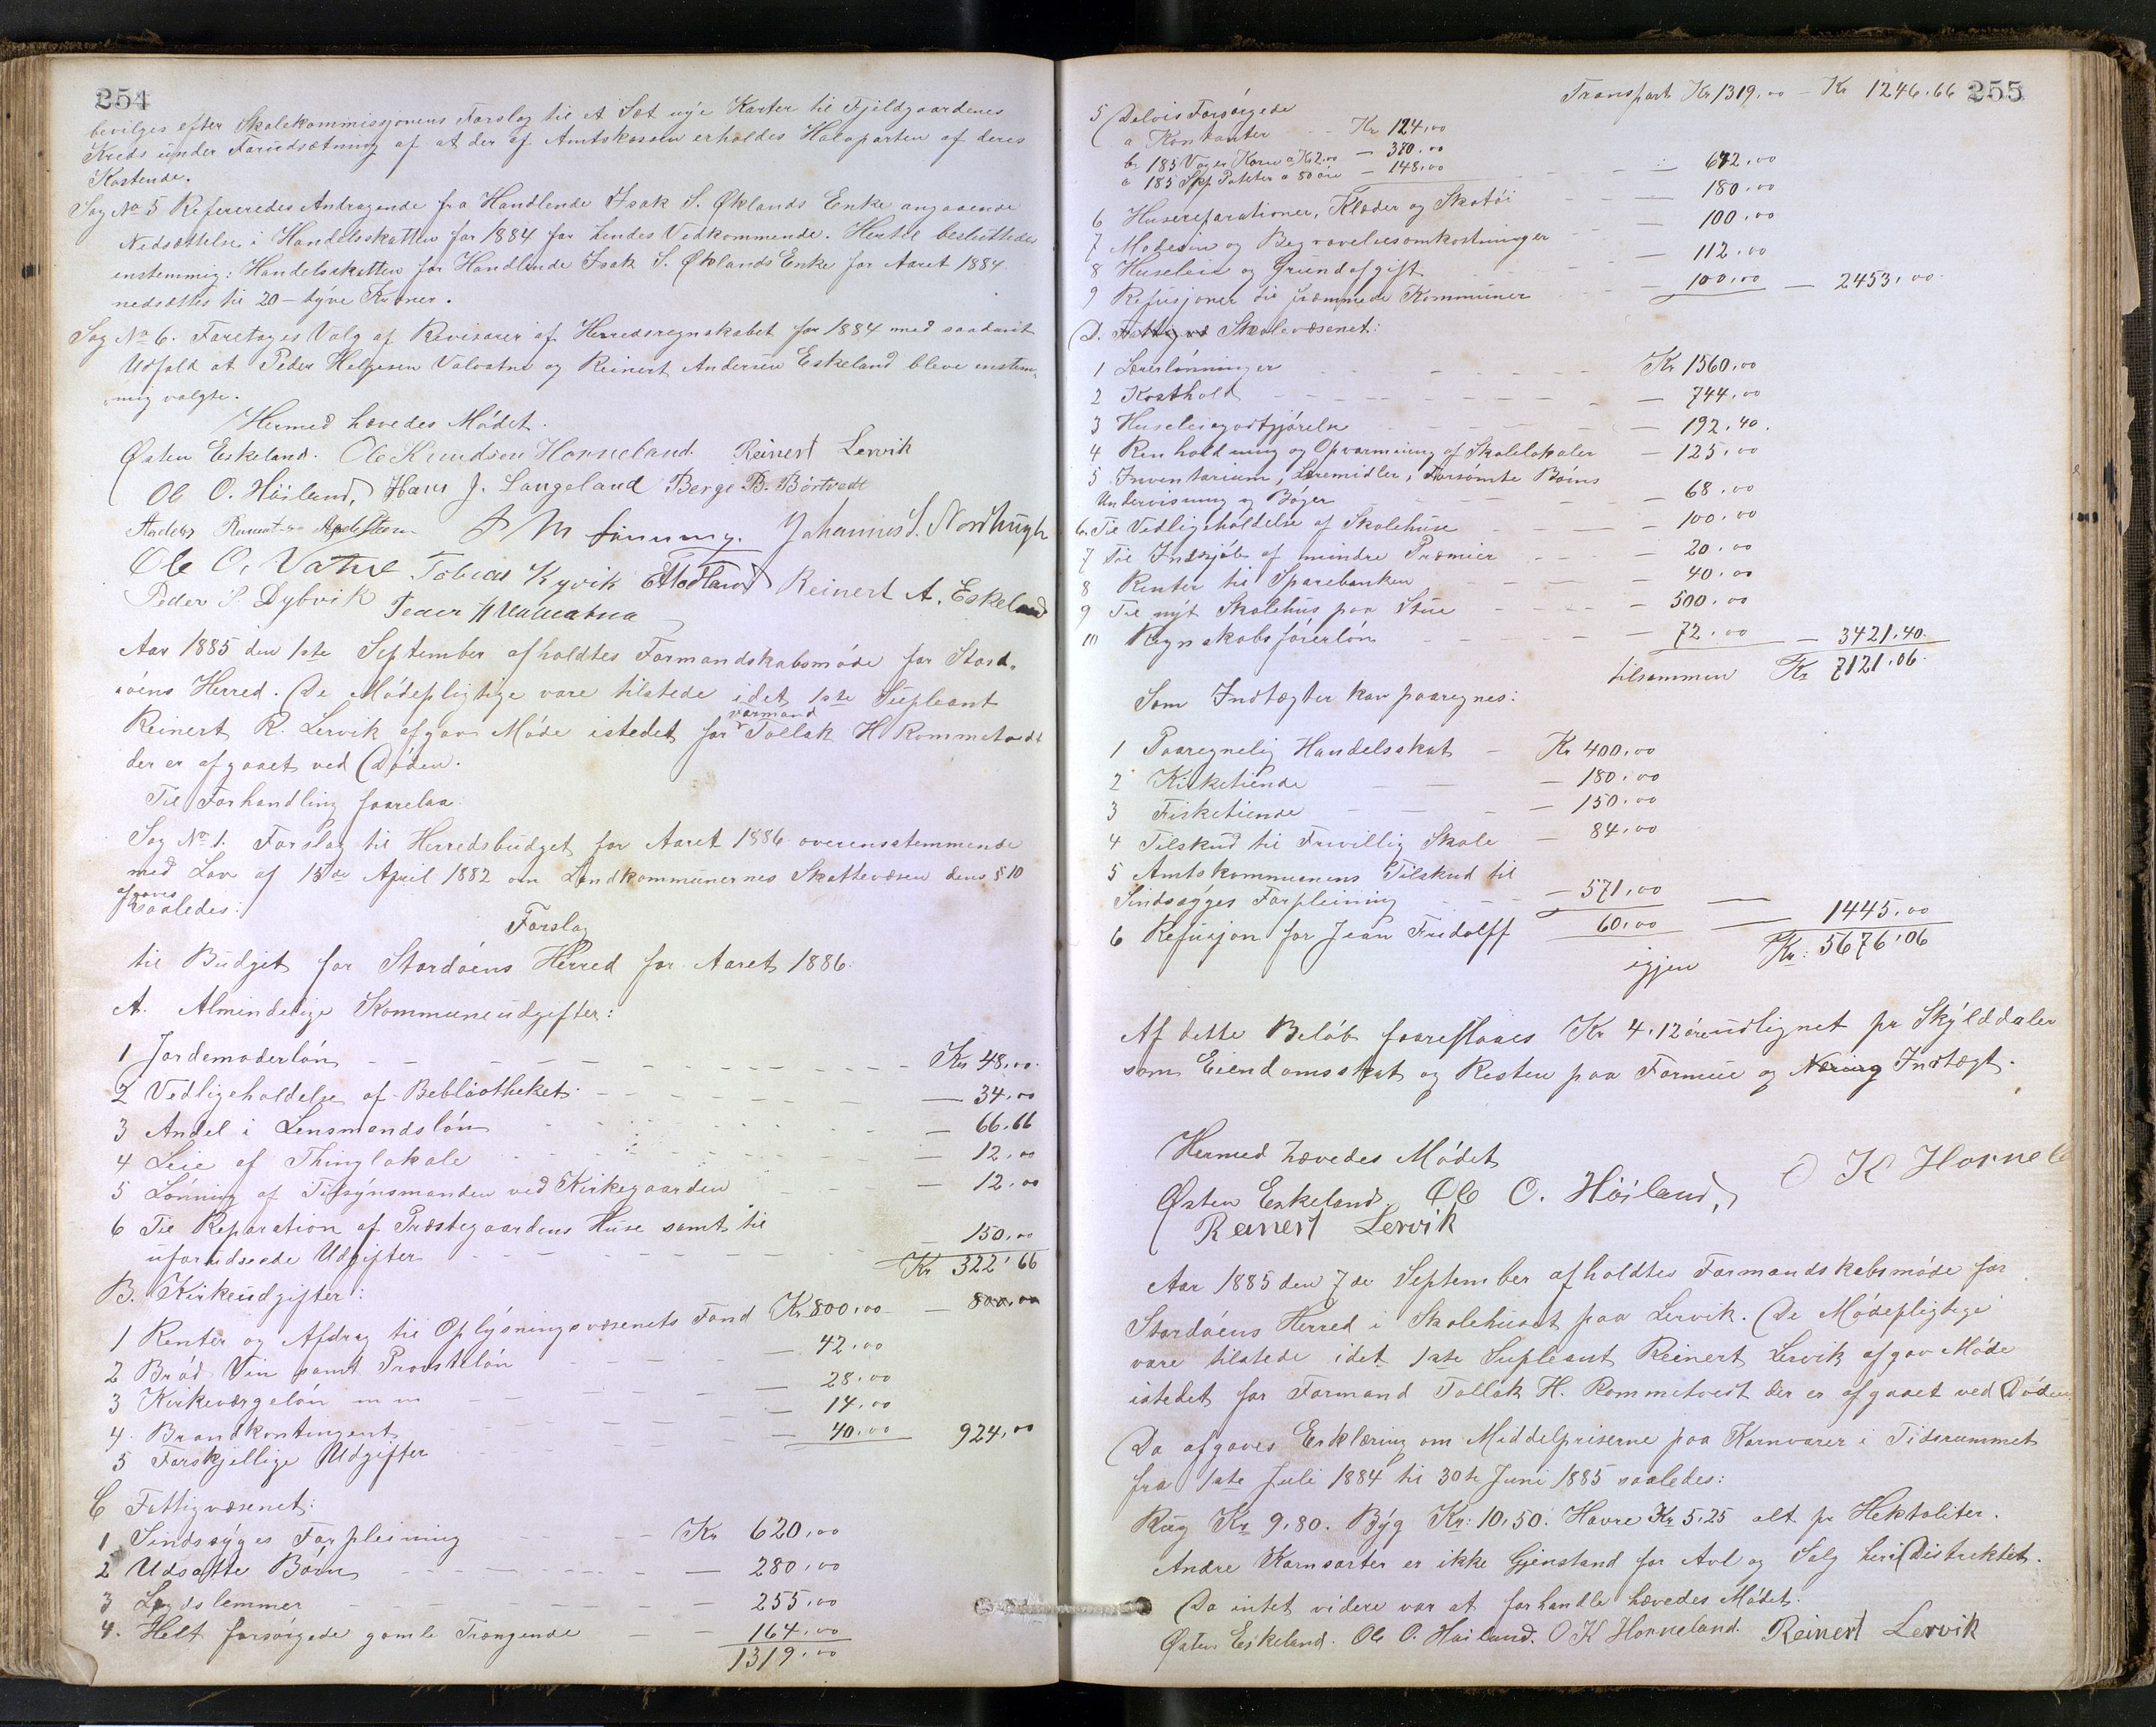 254
bevilges efter Skolekommissjonens Forslag til et Sæt nye Karter til Fjeldgaardenes
Kreds under Forudsætning af at der af Amtskassen erholdes Halvparten af deres
Kostende.
Sag No 5 Refereredes Andragende fra Handlende Isak S. Øklands Enke angaaende
Nedsættelse i Handelsskatten for 1884 for hendes Vedkommende. Hertil besluttedes
enstemmig: Handelsskatten for Handlende Isak S. Øklands Enke for Aaret 1884
nedsættes til 20 – tyve Kroner.
Sag No 6. Foretoges Valg af Revisorer af Herredsregnskabet for 1884 med saadant
Udfald at Peder Helgesen Valvatne og Reinert Andersen Eskeland bleve enstem-
mig valgte.
Hermed hævedes Mødet.
Østen Eskeland. Ole Knudsen Horneland. Reinert Lervik
Ole O. Høiland, Hans J. Langeland Berge B. Børtvedt
Anders J M Johannes S. Nordhugh
Ole O. Vatne Tobias Kyvik Reinert A. Eskeland
Peder S. Dybvik Peder H Valvatna
Aar 1885 den 1ste September afholdtes Formandskabsmøde for Stord-
øens Herred. De Mødepligtige vare tilstede idet 1ste Supleant
Reinert R. Lervik afgav Møde istedet for Formand Tollak H Rommetvedt
der er afgaaet ved Døden.
Til Forhandling forelaa:
Sag No 1. Forslag til Herredsbudget for Aaret 1886 overensstemmende
med Lov af 15de April 1882 om Landkommunernes Skattevæsen dens § 10
afgaves saaledes:
Forslag
til Budget for Stordøens Herred for Aaret 1886.
A. Almindelige Kommuneudgifter:
1 Jordemoderløn Kr 48.00
2 Vedligeholdelse af Bebliotheket — 34.00
3 Andel i Lensmandsløn — 66.66
4 Leie af Thinglokale — 12.00
5 Lønning af Tilsynsmanden ved Kirkegaarden — 12.00
6 Til Reparation af Præstegaardens Huse samt til
uforudseede Udgifter — 150.00
Kr 322.66
B. Kirkeudgifter:
1 Renter og Afdrag til Oplysningsvæsenets Fond Kr 800.00 — 800.00
2 Brød Vin samt Provsteløn — 42.00
3 Kirkeværgeløn m m — 28.00
4. Brandkontingent — 14.00
5 Forskjellige Udgifter — 40.00 924.00
C Fattigvæsenet:
1 Sindssyges Forpleining Kr 620.00
2 Udsatte Børn — 280.00
3 Lægdslemmer — 255.00
4. Helt forsørgede gamle Trængende — 164.00
1319.00
Transport Kr 1319.00 — Kr 1246.66 255
5 Delvis Forsørgede
a Kontanter Kr 124.00
b 185 Voger Korn a Kr 2.00 — 370.00
c 185 Skp Poteter a 80 øre — 148.00 — 642.00
6 Husereparationer, Klæder og Skotøi — 180.00
7 Medesin og Begravelsesomkostninger — 100.00
8 Huseleie og Grundafgift — 112.00
9 Refusjoner til fremmede Kommuner — 100.00 — 2453.00
D. Skolevæsenet:
1 Lærerlønninger Kr 1560.00
2 Kosthold — 744.00
3 Huseleiegodtgjørelse — 192.40.
4 Renholdning og Opvarmning af Skolelokaler — 125.00
5 Inventarium, Læremidler, Forsømte Børns
Undervisning og Bøger — 68.00
6. Til Vedligeholdelse af Skolehuse — 100.00
7 Til Indkjøb af mindre Præmier — 20.00
8 Renter til Sparebanken — 40.00
9 Til nyt Skolehus paa Stue — 500.00
10 Regnskabsførerløn — 72.00 — 3421.40.
tilsammen Kr 7121.06.
Som Indtægter kan paaregnes:
1 Paaregnelig Handelsskat — Kr 400.00
2 Kirketiende — 180.00
3 Fisketiende — 150.00
4 Tilskud til Frivillig Skole — 84.00
5 Amtskommunens Tilskud til
Sindssyges Forpleining — 571.00
6 Refusjon for Jean Fridolff 60.00 — 1445.00
igjen Kr: 5676.06
Af dette Beløb foreslaaes Kr 4.12 øre udlignet pr Skylddaler
som Eiendomsskat og Resten paa Formue og Næring Indtægt.
Hermed hævedes Mødet
Østen Eskeland. Ole O. Höiland, O K Hornel
Reinert Lervik
Aar 1885 den 7de September afholdtes Formandskabsmøde for
Stordøens Herred i Skolehuset paa Lervik. De Mødepligtige
vare tilstede idet 1ste Supleant Reinert Lervik afgav Møde
istedet for Formand Tollak H. Rommetvedt der er afgaaet ved Døden
Da afgaves Erklæring om Middelpriserne paa Kornvarer i Tidsrummet
fra 1ste Juli 1884 til 30te Juni 1885 saaledes:
Rug Kr 9.80. Byg Kr: 10.50. Havre Kr 5.25 alt pr Hektoliter.
Andre Kornsorter er ikke Gjenstand for Avl og Salg heri Distriktet.
Da intet videre var at forhandle hævedes Mødet.
Østen Eskeland. Ole O. Høiland. O K Horneland. Reinert Lervik